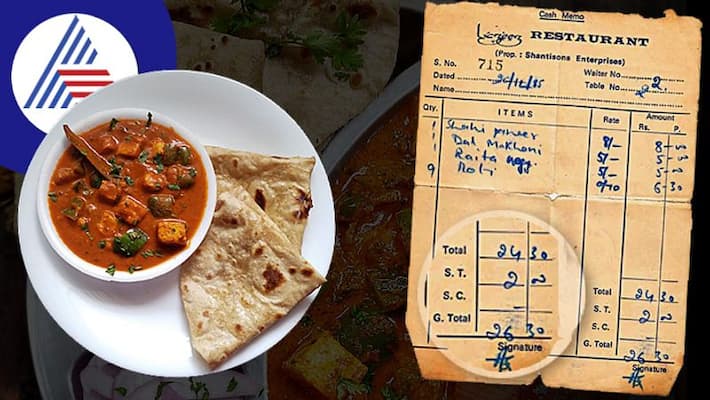 Cash Memo
Lazeez RESTAURANT
(Prop.: Shantisons Enterprises)
S. No. 715 Waiter No 2.
Dated 20/12/85 Table No 2
Name
Qty. ITEMS Rate Amount
Rs. P.
1 Shahi paneer 8/- 8-00
1 Dal Makhani 5/- 5-00
1 Raita 5/- 5-00
9 Roti 0/70 6-30
Total 24 30
S. T. 2 00
S. C.
G. Total 26 30
Signature
Total 24 30
S. T. 2 00
S. C.
G. Total 26 30
Signature